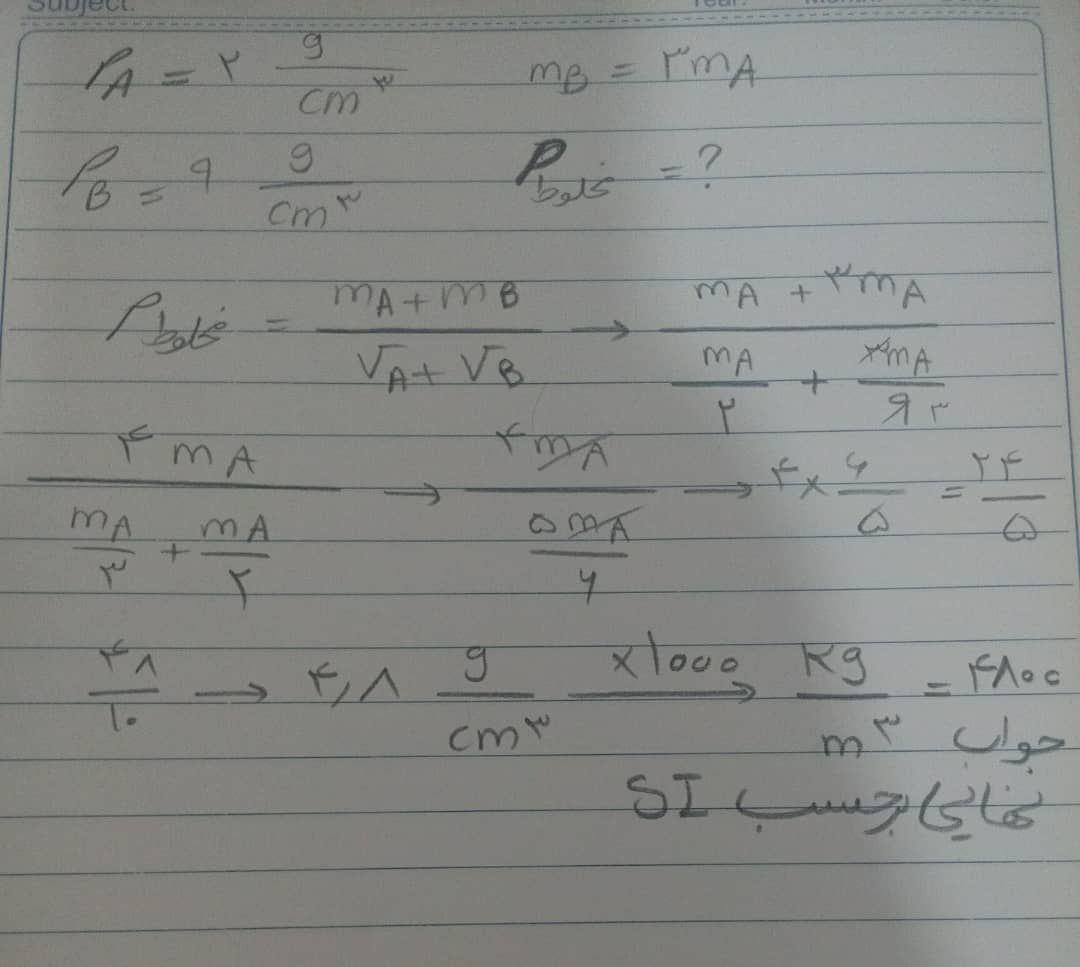 Subject:
ρA = ۲ g/cm³ mB = ۳mA
ρB = ۹ g/cm³ ρمخلوط = ?
ρمخلوط = (mA + mB)/(VA + VB) → (mA + ۳mA)/(mA/۲ + ۳mA/۹ ۳)
۴mA/(mA/۳ + mA/۲) → ۴mA/(۵mA/۶) → ۴ × ۶/۵ = ۲۴/۵
۴۸/۱۰ → ۴,۸ g/cm³ ×۱۰۰۰ → Kg/m³ = ۴۸۰۰
جواب
نهایی برحسب SI